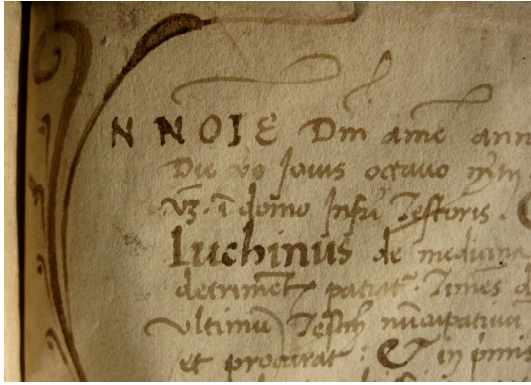 N NOIE Dm ame ann
Die v͞o Jovis octavo m͞m
vz. ī domo Infr͞i Testoris.
Luchinus de medicina
detriment patiat. Times d
ultimū Testm̄ nūcupativū
et procurat: & in prim